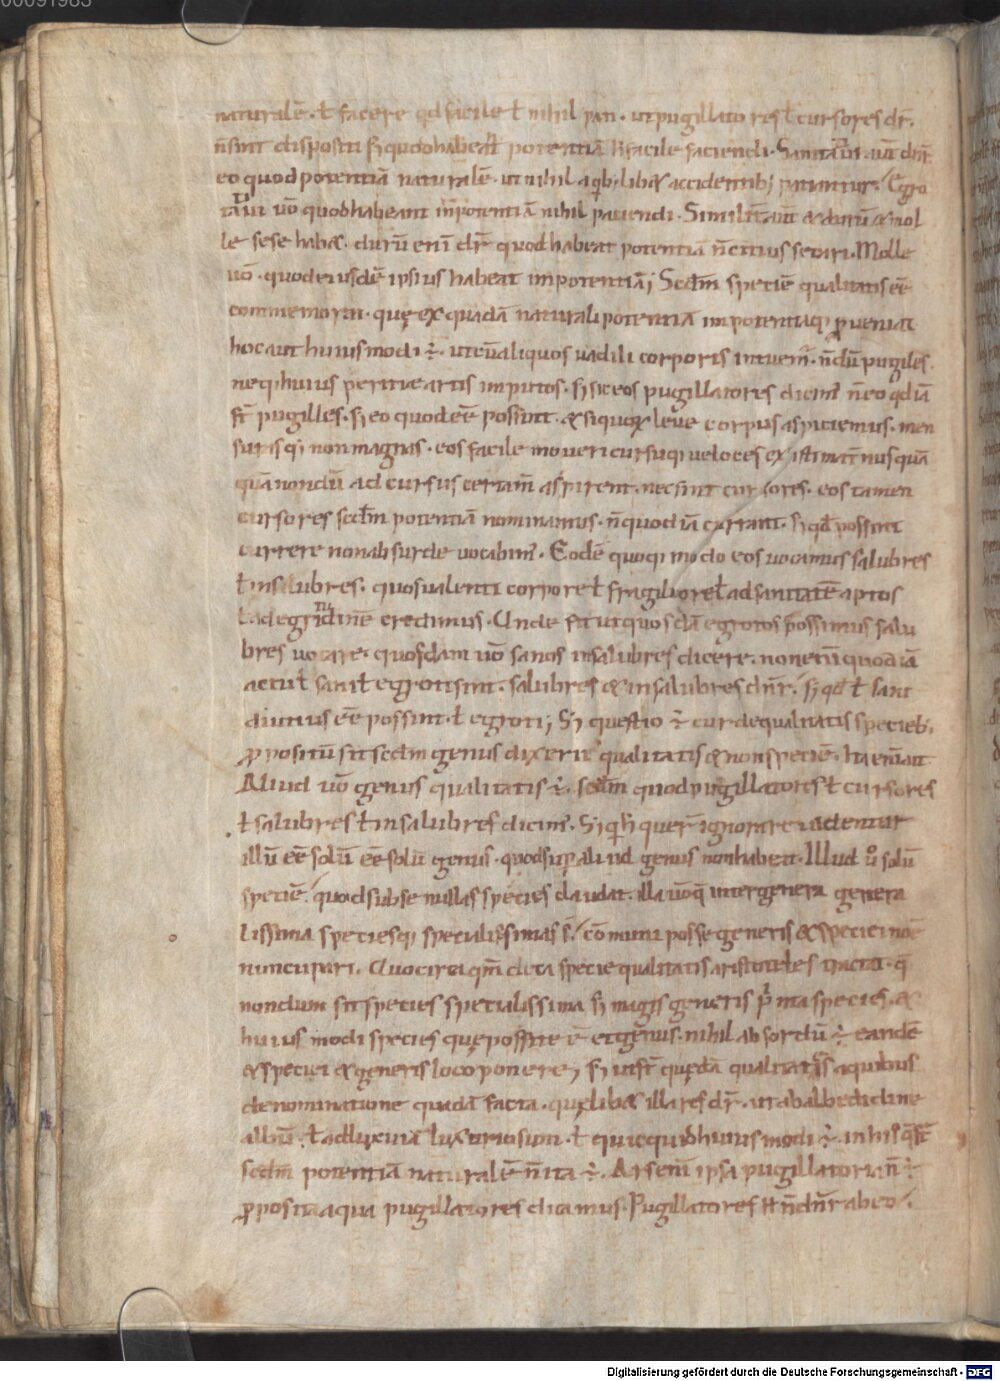 00091983
naturalē · ł facere qd facile ł nihil pati · ut pugillatores ł cursores dr̄ ·
n̄ sint dispositi sꝫ quod habeāt potentiā facile faciendi · Sanitatiui aut dn̄r
eo quod potentiā naturalē · ut nihil a qbꝫ libꝫ accidentibꝫ patiantur · Egro
tatiui uō quod habeant inpotentiā nihil patiendi · Similit aut & durū & mol
le sese habꝫ · durū enī dr̄ quod habeat potentiā n̄ citius secari · Molle
uō · quod eiusdē ipsius habeat inpotentiā ; Scdm̄ speciē qualitatis eē
commemorat · quę ex quadā naturali potentiā inpotentiaqꝫ ꝓueniat
hoc aut huiusmodi ÷ · ut cū aliquos uadi li corporis intuem̄ · n̄dū pugiles
neqꝫ huius peritiae artis imputos · sꝫ sic eos pugillatores dicim̄ n̄ eo qd iā
st̄ pugilles · sꝫ eo quod eē possint · & si quorū leue corpus aspiciemus · men
surisqꝫ non magnas · eos facile moueri cursuqꝫ ueloces existimam̄ nusquā
quā nondū ad cursus certam̄ aspirent · nec sint cursores · eos tamen
cursores scdm̄ potentiā nominamus · n̄ quod iā currant · sꝫ qd possint
currere non absurde uocabim̄ · Eodē quoqꝫ modo eos uocamus salubres
ł insalubres · quos ualenti corpore ł fragiliore ł ad sanitatē aptos
ł ad egritudinē credimus · Unde fit ut quosdā egrotos possimus salu
bres uocare · quosdam uō sanos insalubres dicere · non enī quod iā
actu ł sani ł egroti sint · salubres & insalubres dn̄r · sꝫ qd ł sani
diutius eē possint · ł egroti ; Sꝫ questio ÷ cur de qualitatis speciebꝫ
ꝓpositū sit scdm genus dixerit qualitatis & non speciē · Ita enī ait
Aliud uō genus qualitatis ÷ · scdm̄ quod pugillatores ł cursores
ł salubres ł insalubres dicim̄ · Sꝫ qui h̄ quer̄ ignorare uidentur
illū eē solū eē solū genus · quod sup aliud genus non habeat · Illud uō solū
speciē · quod sub se nullas species claudat · illa uō q̄ inter genera genera
lissima speciesqꝫ specialissimas st̄ · cōmuni posse generis & speciei noē
nuncupari · Quocirca qm̄ de ea specie qualitatis aristoteles tractat · q̄
nondum sit species specialissima sꝫ magis generis prima species · &
huiusmodi species quę possit eē et genus · nihil absordū ÷ eandē
& speciei & generis loco ponere ; Sꝫ uist̄ quędā qualitatis a quibus
denominatione quadā facta · quęlibꝫ illa res dr̄ · ut ab albedidine
albū · ł ad luxuriā luxuriosum · ł quicquid huiusmodi ÷ · in his q̄ st̄
scdm potentiā naturalē n̄ ita ÷ · Ars enī ipsa pugillatoria n̄ ÷
ꝓposita a qua pugillatores dicamus · Pugillatores n̄ dn̄r ab eo
Digitalisierung gefördert durch die Deutsche Forschungsgemeinschaft - DFG